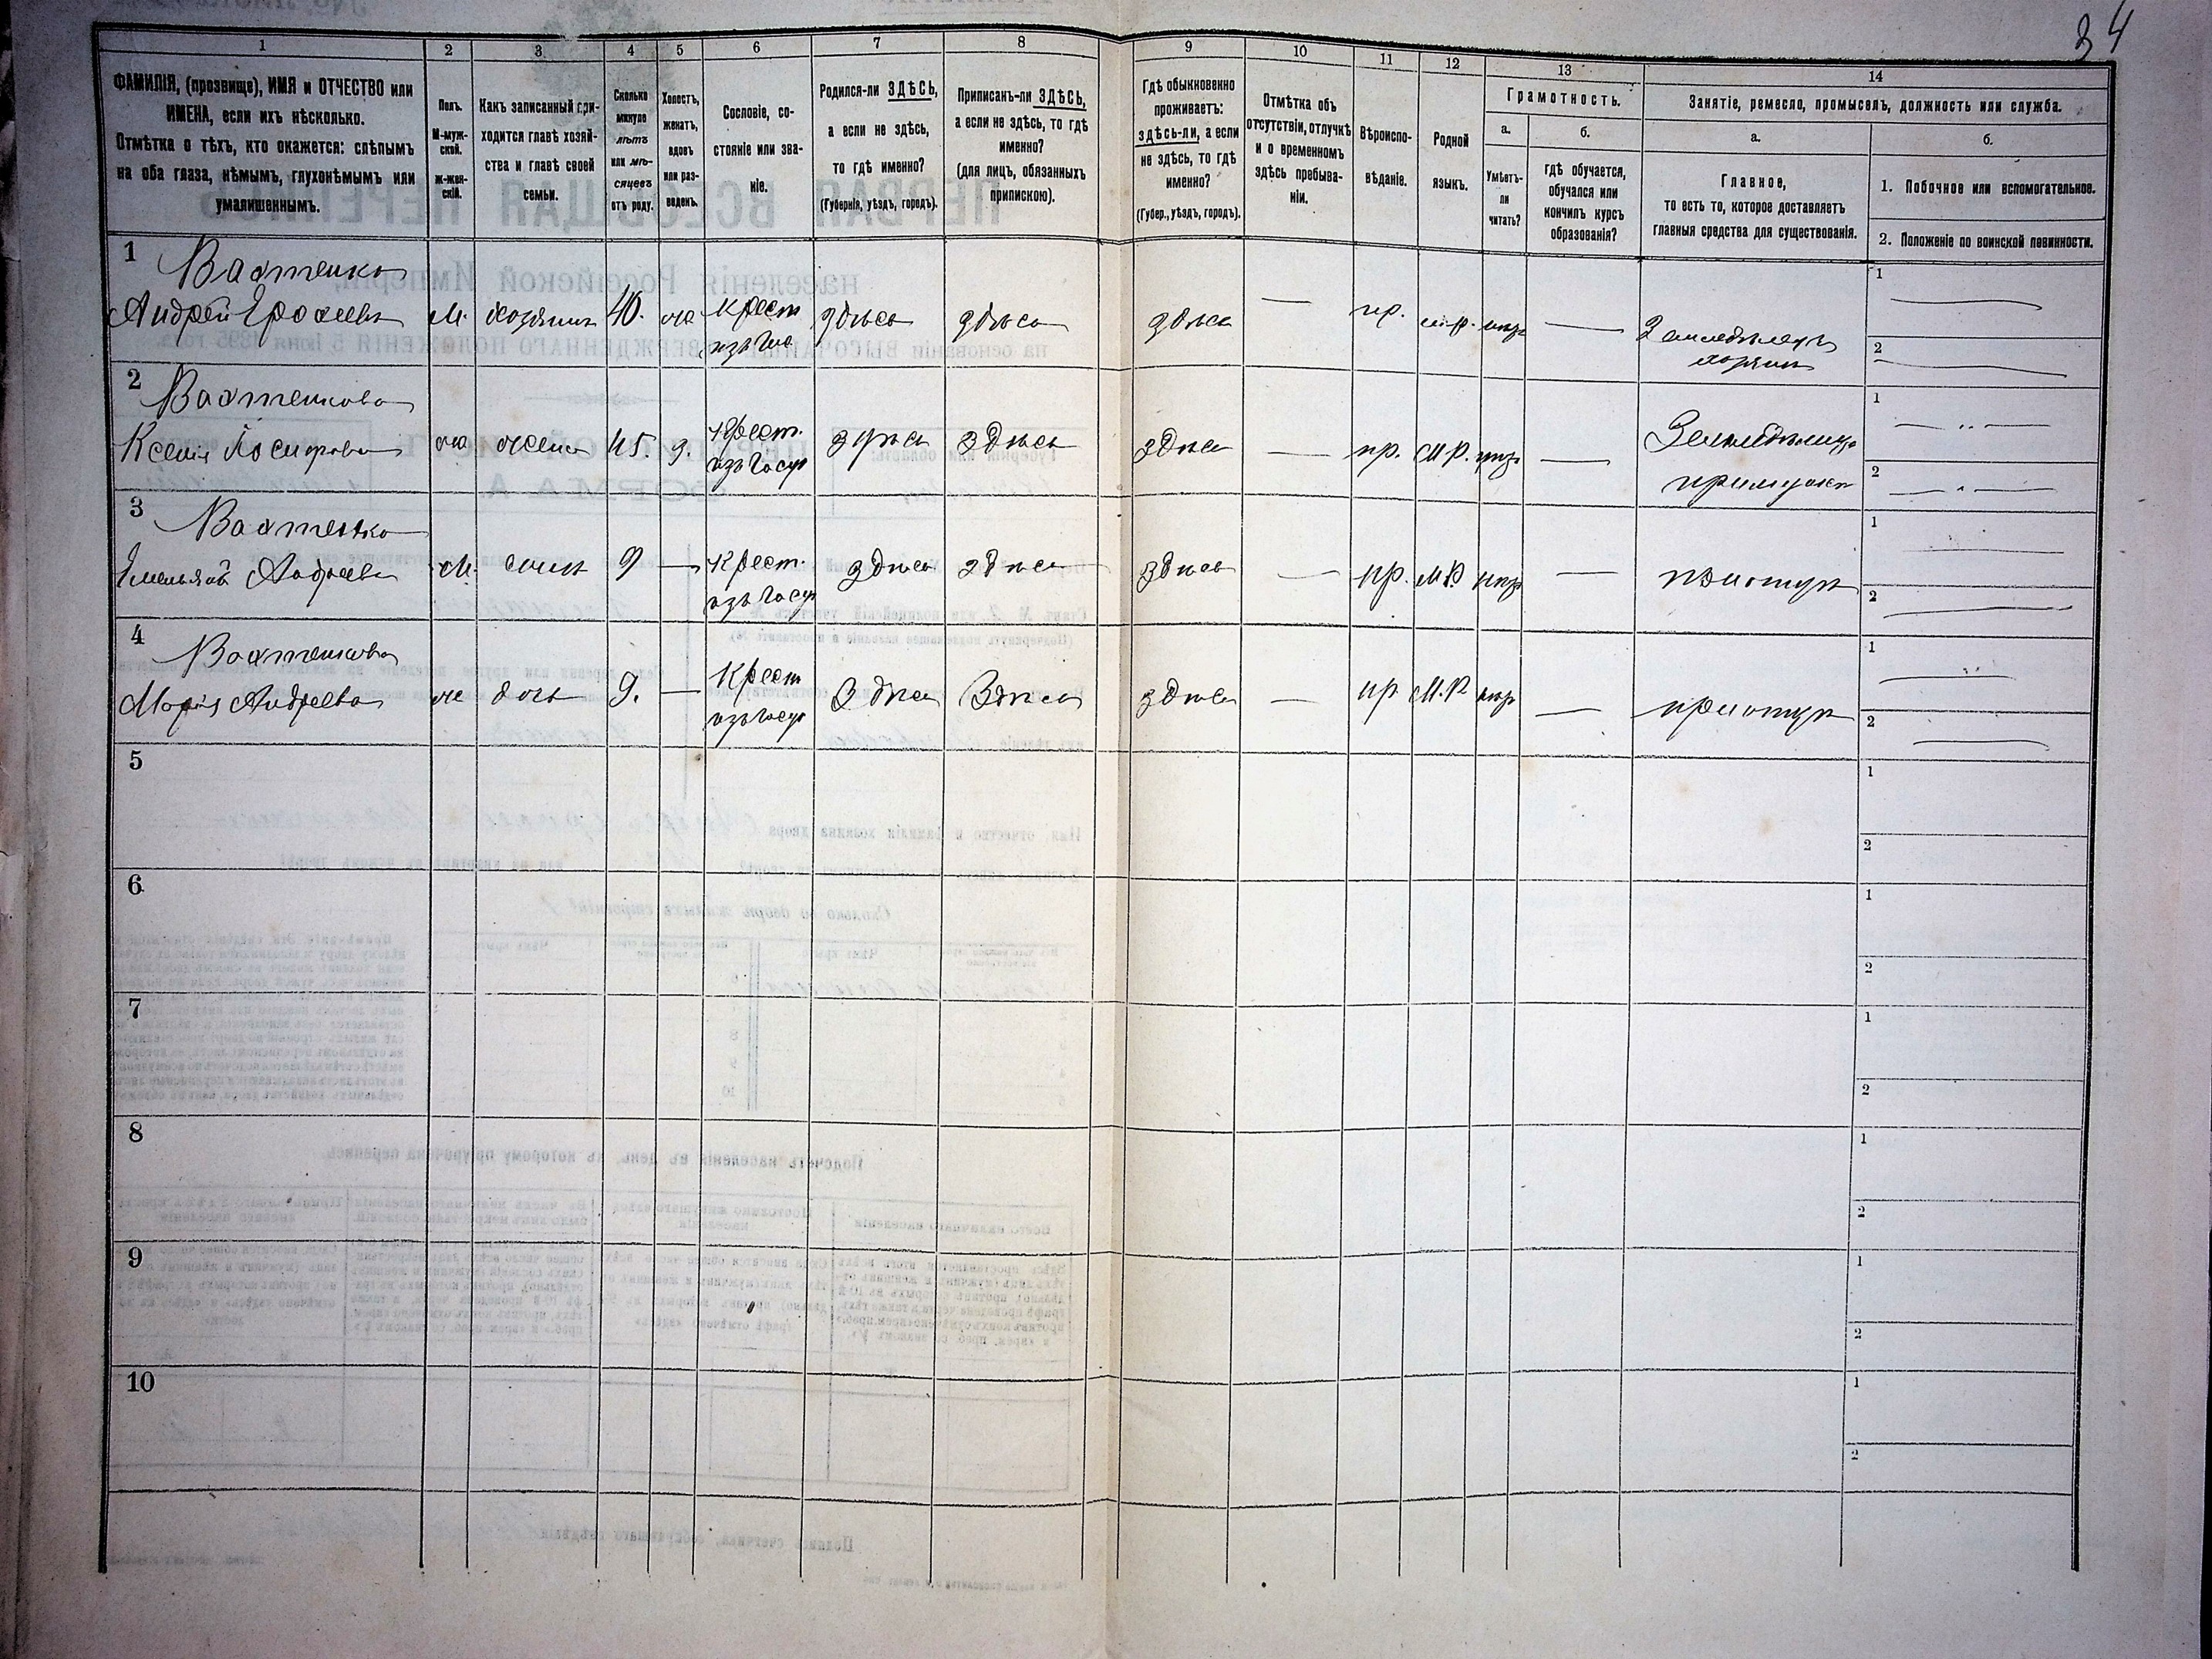 34
1
2
3
4
5
6
7
8
9
10
11
12
13
14
ФАМИЛІЯ, (прозвище), ИМЯ и ОТЧЕСТВО или
ИМЕНА, если ихъ нѣсколько.
Отмѣтка о тѣхъ, кто окажется: слѣпымъ
на оба глаза, нѣмымъ, глухонѣмымъ или
умалишеннымъ.
Полъ.
М-муж-
ской.
Ж-жен-
скій.
Какъ записанный при-
ходится главѣ хозяй-
ства и главѣ своей
семьи.
Сколько
минуло
лѣтъ
или мѣ-
сяцевъ
отъ роду.
Холостъ,
женатъ,
вдовъ
или раз-
веденъ.
Сословіе, со-
стояніе или зва-
ніе.
Родился-ли ЗДѢСЬ,
а если не здѣсь,
то гдѣ именно?
(Губернія, уѣздъ, городъ).
Приписанъ-ли ЗДѢСЬ,
а если не здѣсь, то гдѣ
именно?
(для лицъ, обязанныхъ
припискою).
Гдѣ обыкновенно
проживаетъ:
здѣсь-ли, а если
не здѣсь, то гдѣ
именно?
(Губер., уѣздъ, городъ).
Отмѣтка объ
отсутствіи, отлучкѣ
и о временномъ
здѣсь пребыва-
ніи.
Вѣроиспо-
вѣданіе.
Родной
языкъ.
Грамотность.
а.
Умѣетъ-
ли
читать?
б.
гдѣ обучается,
обучался или
кончилъ курсъ
образованія?
Занятіе, ремесло, промыселъ, должность или служба.
а.
Главное,
то есть то, которое доставляетъ
главныя средства для существованія.
б.
1. Побочное или вспомогательное.
2. Положеніе по воинской повинности.
1
Вахтенко
Андрей М. хозяинъ 40. Крест здѣсь здѣсь здѣсь — пр. —
Земледѣлецъ
хозяинъ
1
2
2
Вахтенкова
Ксенія жена 45. з. Крест. здѣсь здѣсь здѣсь — пр. М.Р. —
изъ госуд
1
2
3
Вахтенко
Андреевъ М. сынъ 9 — Крест. здѣсь здѣсь здѣсь — пр. М.Р —
изъ госуд
1
2
4
Вахтенкова
Марія Андреева дочь 9. — Крест здѣсь Здѣсь здѣсь — пр М.Р —
изъ госуд
1
2
5
1
2
6
1
2
7
1
2
8
1
2
9
1
2
10
1
2